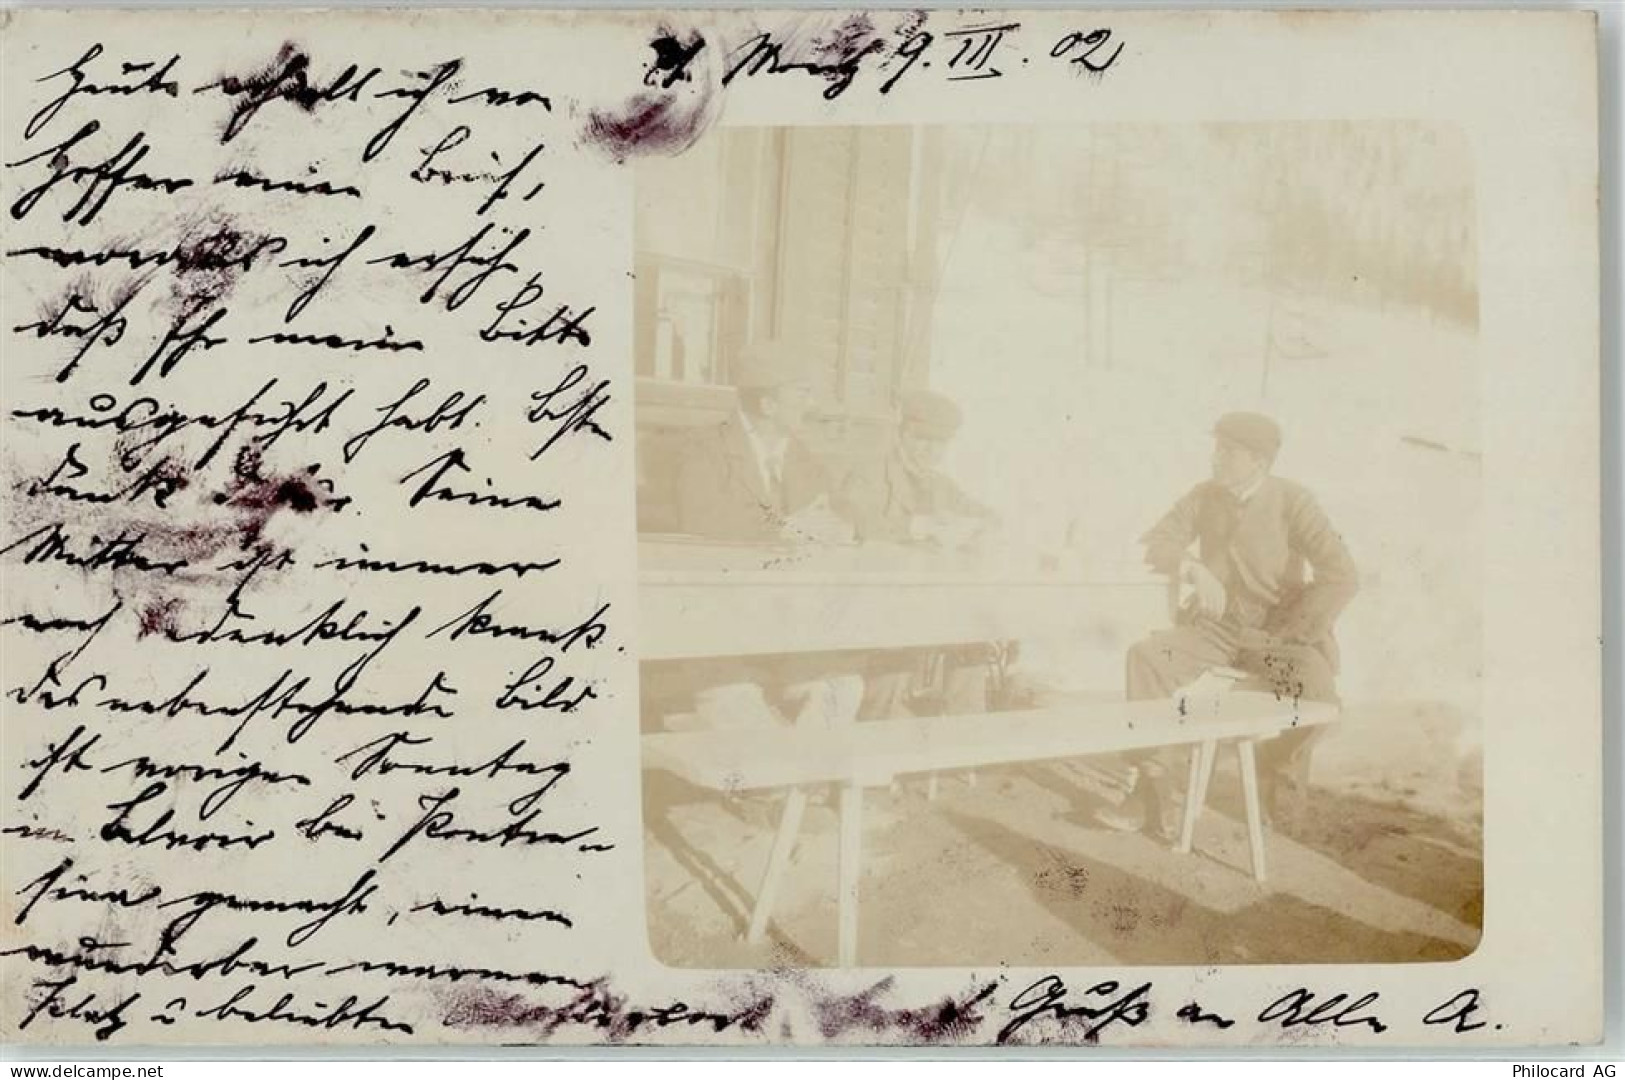 St. Moritz 9. III. 02
Heute erhielt ich von
Hoffer einen Brief,
woraus ich ersehe,
daß Ihr meine Bitte
ausgeführt habt. Besten
Dank dafür. Seine
Mutter ist immer
noch bedenklich krank.
Das nebenstehende Bild
ist vorigen Sonntag
in Belvoir bei Pontre-
sina gemacht, einem
wunderbar warmen
Platz u beliebten
Gruß an Alle A.
Philocard AG